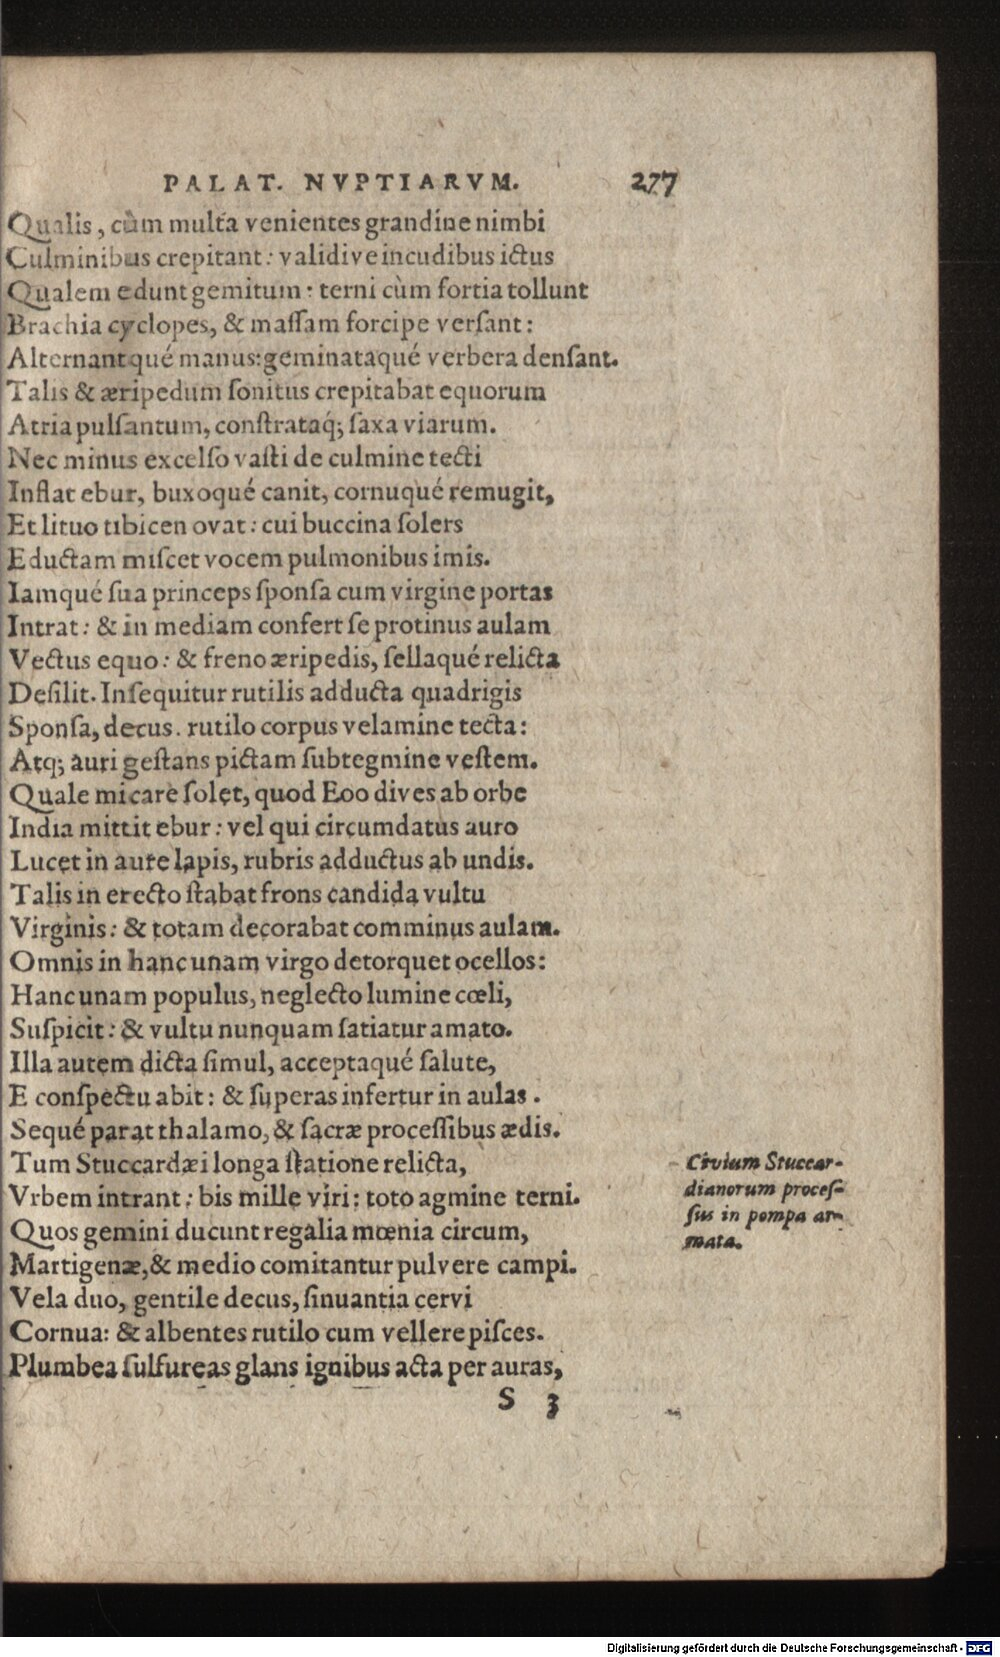 PALAT. NVPTIARVM. 277
Qualis, cùm multa venientes grandine nimbi
Culminibus crepitant: validive incudibus ictus
Qualem edunt gemitum: terni cùm fortia tollunt
Brachia cyclopes, & maſſam forcipe verſant:
Alternantqué manus: geminataqué verbera denſant.
Talis & æripedum ſonitus crepitabat equorum
Atria pulſantum, conſtrataq́; ſaxa viarum.
Nec minus excelſo vaſti de culmine tecti
Inflat ebur, buxoqué canit, cornuqué remugit,
Et lituo tibicen ovat: cui buccina ſolers
Eductam miſcet vocem pulmonibus imis.
Iamqué ſua princeps ſponſa cum virgine portas
Intrat: & in mediam confert ſe protinus aulam
Vectus equo: & freno æripedis, ſellaqué relicta
Deſilit. Inſequitur rutilis adducta quadrigis
Sponſa, decus. rutilo corpus velamine tecta:
Atq; auri geſtans pictam ſubtegmine veſtem.
Quale micare ſolet, quod Eoo dives ab orbe
India mittit ebur: vel qui circumdatus auro
Lucet in aure lapis, rubris adductus ab undis.
Talis in erecto ſtabat frons candida vultu
Virginis: & totam decorabat comminus aulam.
Omnis in hanc unam virgo detorquet ocellos:
Hanc unam populus, neglecto lumine cœli,
Suſpicit: & vultu nunquam ſatiatur amato.
Illa autem dicta ſimul, acceptaqué ſalute,
E conſpectu abit: & ſuperas infertur in aulas.
Sequé parat thalamo, & ſacræ proceſſibus ædis.
Tum Stuccardæi longa ſtatione relicta,
Vrbem intrant: bis mille viri: toto agmine terni.
Quos gemini ducunt regalia mœnia circum,
Martigenæ, & medio comitantur pulvere campi.
Vela duo, gentile decus, ſinuantia cervi
Cornua: & albentes rutilo cum vellere piſces.
Plumbea ſulfureas glans ignibus acta per auras,
S 3
Civium Stuccar-
dianorum proceſ-
ſus in pompa ar-
mata.
Digitalisierung gefördert durch die Deutsche Forschungsgemeinschaft - DFG